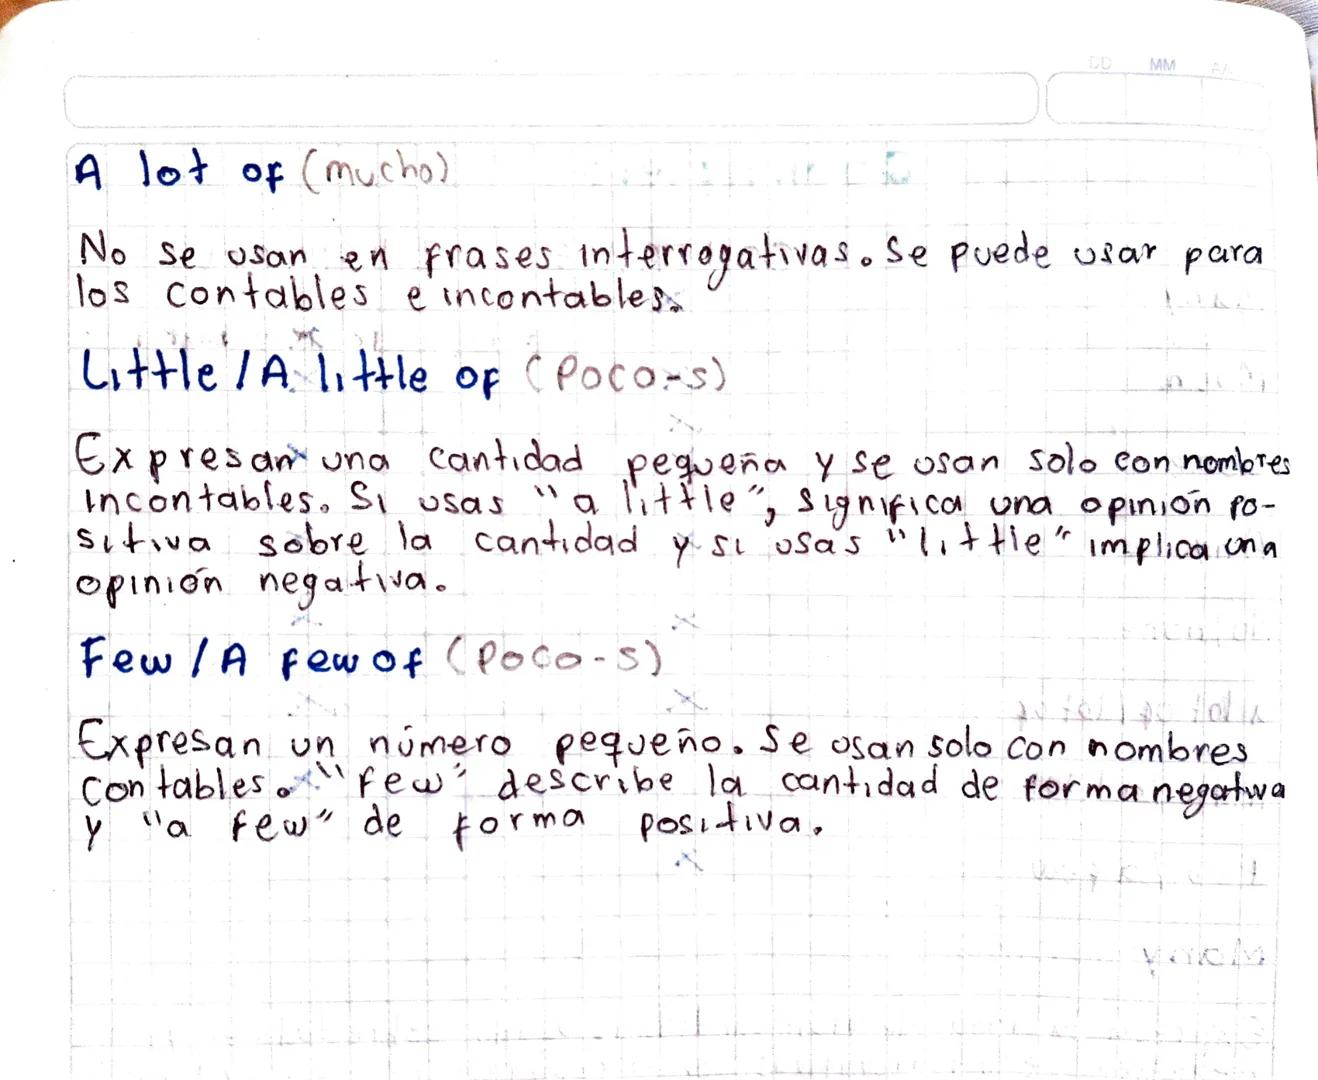 DD MM AA
A lot of (mucho)
No se usan en frases interrogativas. Se puede usar para
los contables e incontables.
Little / A little of (Poco-s)
Expresan una cantidad pequeña y se usan solo con nombres
incontables. Si usas "a little", significa una opinión po-
sitiva sobre la cantidad y si usas "little" implica una
opinión negativa.
Few / A few of (Poco-s)
Expresan un número pequeño. Se usan solo con nombres
contables. "few" describe la cantidad de forma negativa
y "a few" de forma positiva.